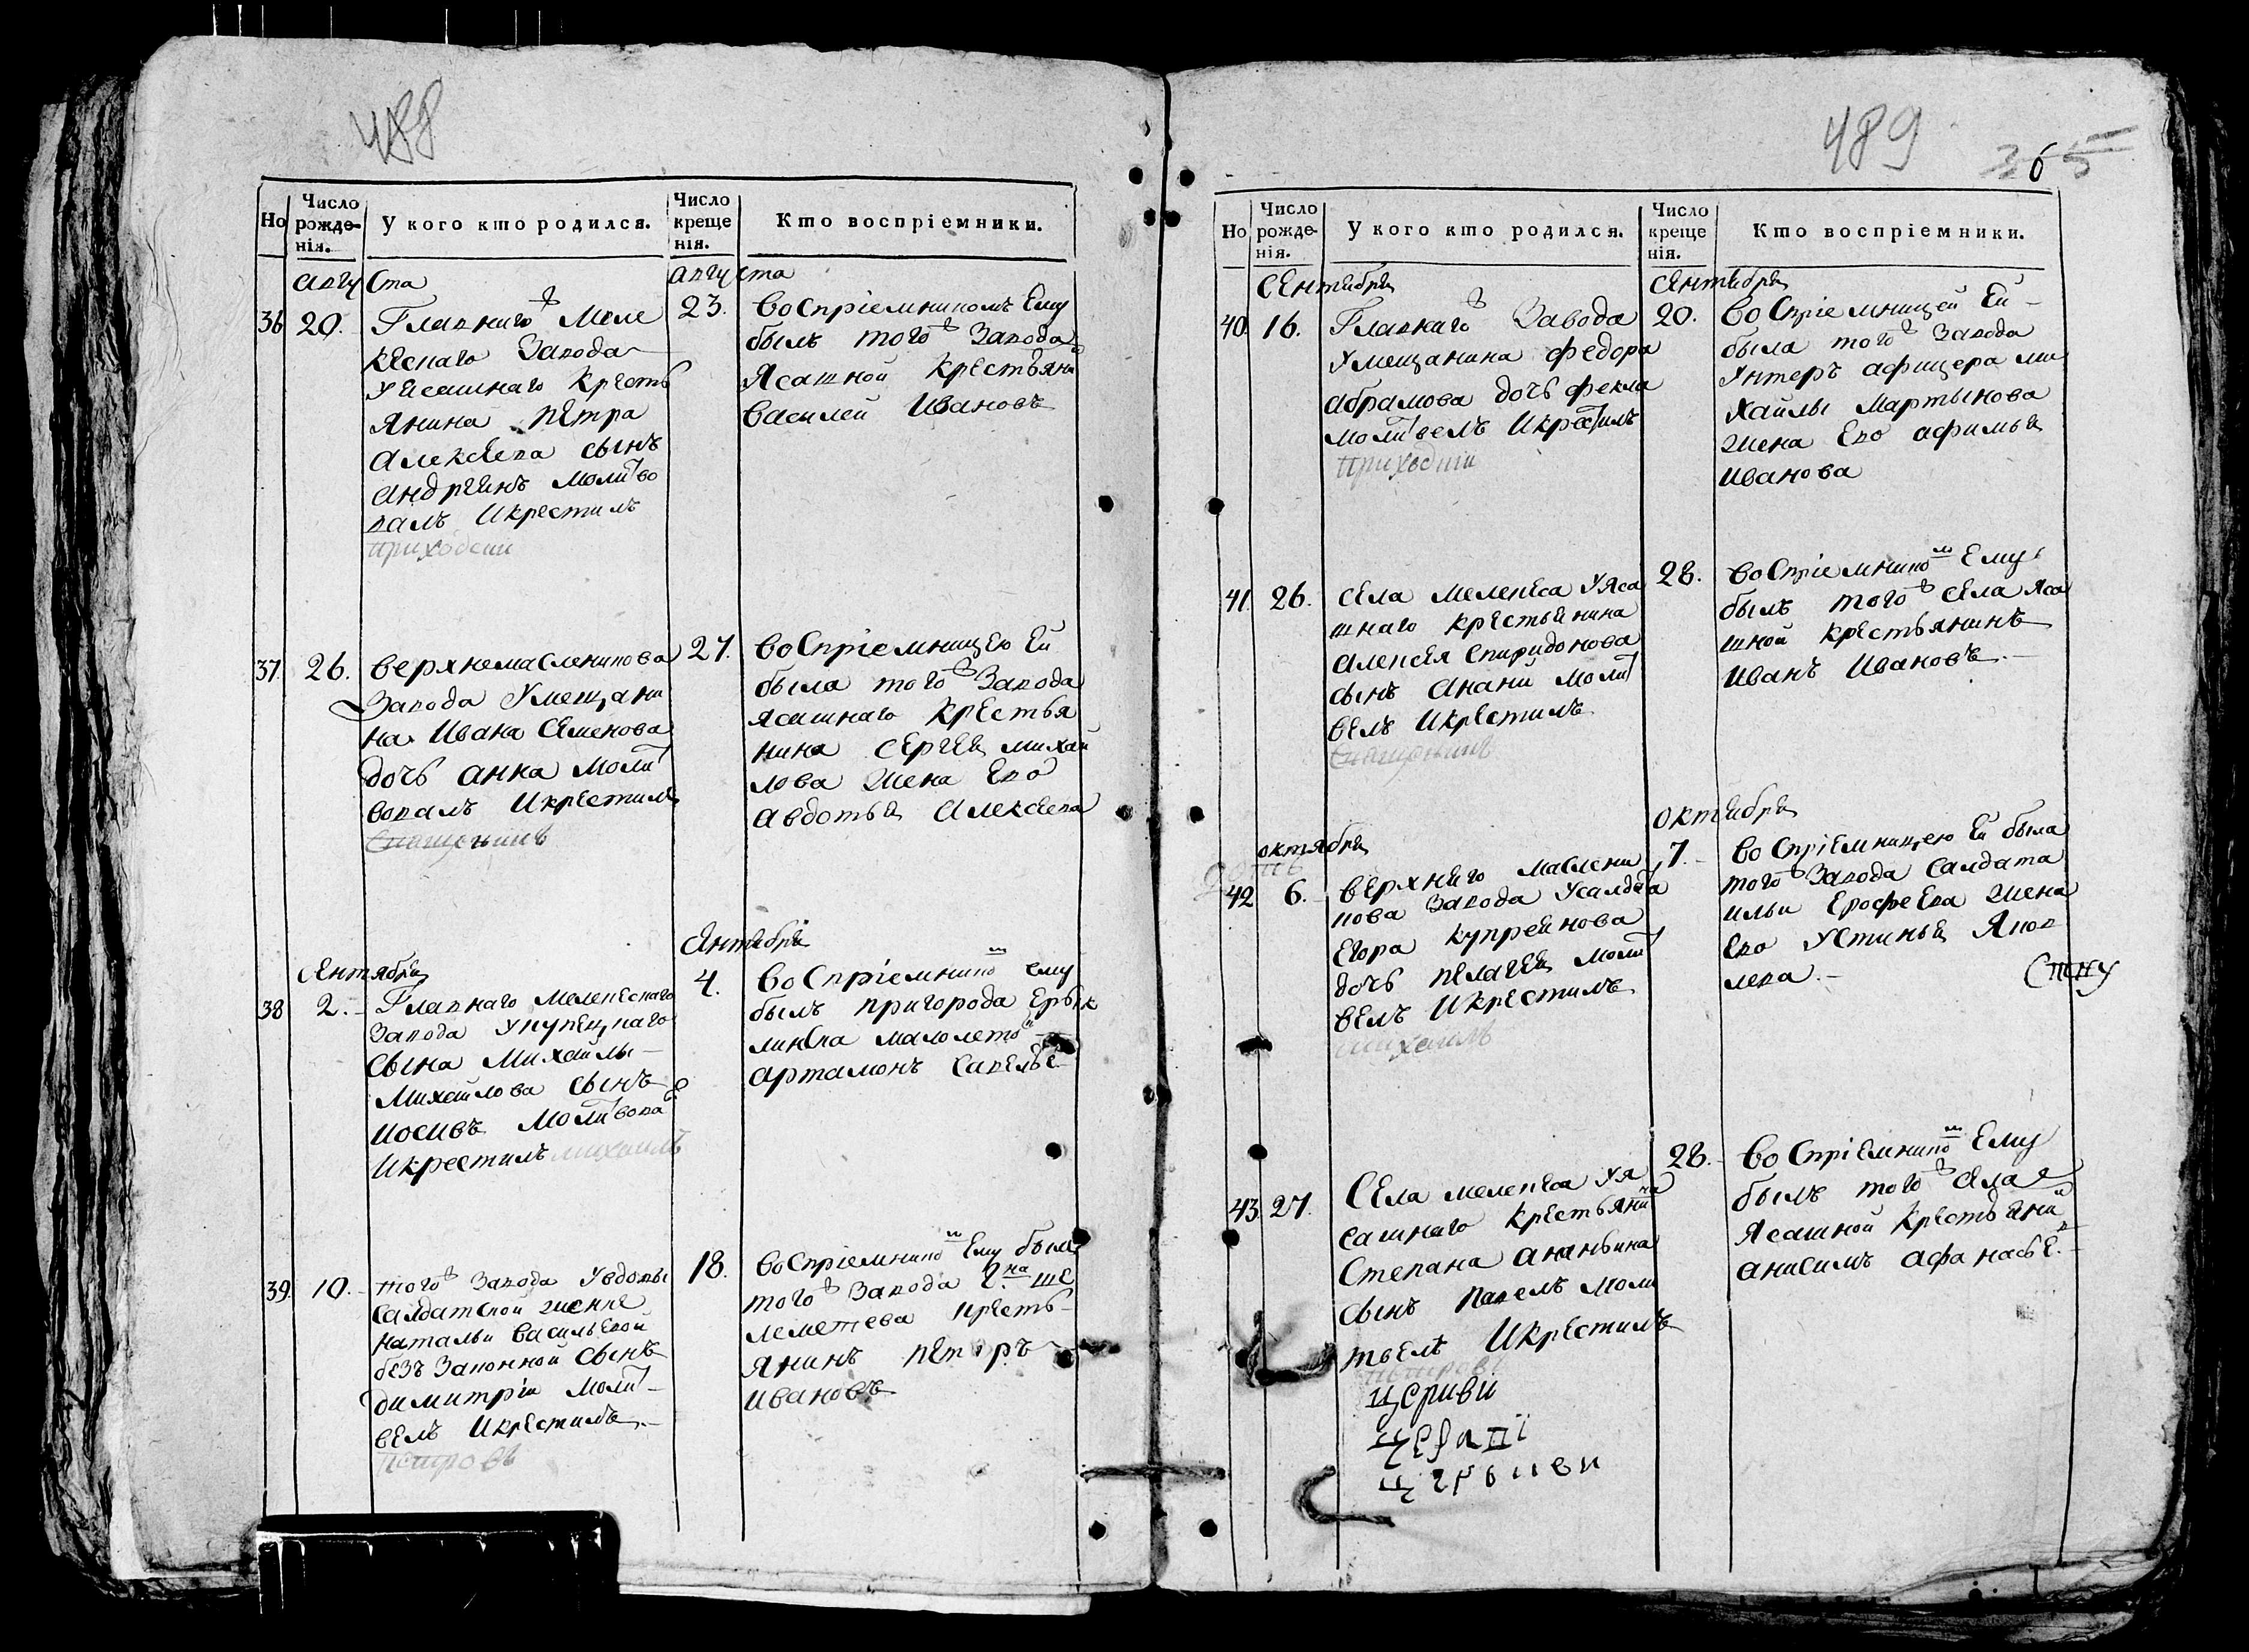 488
Но
Число рождe-нія.
У кого кто родился.
Число креще нія.
Кто воспріемники.
августа
августа
36
20.
Главнаго Меле
кескаго Завода
уясашнаго Кресть
янина Петра
Алексеева сынъ
Андреянъ молитво
валъ Икрестилъ
23.
воспріемникомъ Ему
былъ того Завода
Ясашной Крестьяни
Василей Ивановъ
37.
26.
верхнемасленикова
Завода Умещани
на Ивана Семенова
дочь анна молит
вовалъ Икрестилъ
27.
воспріемницею Ей
была того Завода
ясашнаго Крестья
нина Сергея михай
лова жена Ево
авдотья Алексеева
Сентября
Сентября
38
2.
Главнаго мелекескаго
Завода Укупецкаго
сына Михайлы
Михайлова сынъ
иосивъ молитвова
Икрестилъ михаилъ
4.
воспріемникомъ ему
былъ пригорода Ерык
линска малолето
артамонъ Савелье
39.
10.
того Завода Увдовы
салдатской женке
натальи васильевой
безъ Законной сынъ
димитрій молит
велъ Икрестилъ
Петровъ
18.
воспріемникомъ Ему былъ
того Завода Г:на ше
леметева кресть-
янинъ петръ
ивановъ
489
365
Но
Число рожде-нія.
У кого кто родился.
Число креще нія.
Кто воспріемники.
Сентября
Сентября
40.
16.
Главнаго Завода
Умещанина федора
абрамова дочь фекла
молитвелъ Икрестилъ
20.
воспріемницей Ей
была того Завода
Унтеръ афицера ми
хайлы Мартынова
жена Ево афимья
иванова
41.
26.
села мелекеса Уяса
шнаго крестьянина
алексея спиридонова
сынъ Анани молит
велъ Икрестилъ
28.
воспріемником Ему
былъ того села яса
шной крестьянинъ
иванъ Ивановъ
октября
октября
42
6.
верхняго маслени
кова завода Усалдата
Егора купреянова
дочь пелагея молит
велъ Икрестилъ
михаилъ
7.
воспріемницею Ей была
того Завода салдата
ильи Ерофеева жена
Ево Устинья Яков
лева.
43.
27.
Села мелекеса Уя
сашнаго крестьянина
Степана ананьина
сынъ павелъ моли
твелъ Икрестилъ
28.
воспріемникомъ Ему
былъ того села
Ясашной Крестьяни
анисимъ афанасьЕ.
церкви